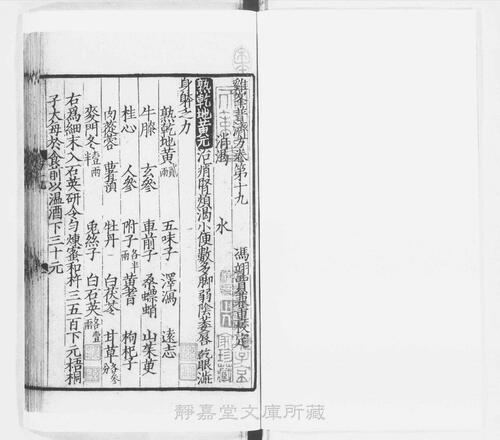 雞峯普濟方卷第十九
馮翊賈兼重校定
消渴 水
熟乾地黃元治消腎煩渴小便數多脚弱陰萎唇乾眼澁
身躰乏力
熟乾地黃貳兩 五味子 澤瀉 遠志
牛膝 玄參 車前子 桑螵蛸 山茱萸
桂心 人參 附子各半兩 黃耆 枸杞子
肉蓯蓉 萆薢 牡丹 白茯苓 甘草各參分
麥門冬壹兩半 兎絲子 白石英各壹兩
右爲細末入石英研令勻煉蜜和杵三五百下元梧桐
子大每於食前以溫酒下三十元
靜嘉堂文庫所藏